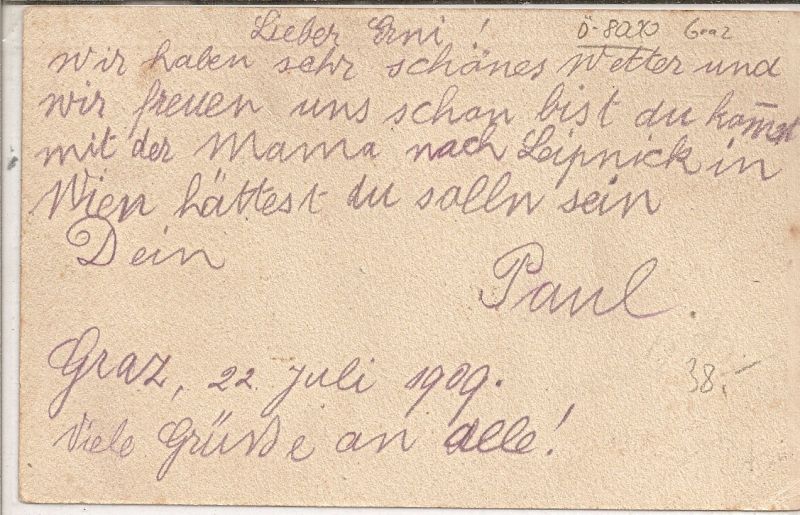 Lieber Erni!
Ö-8010 Graz
wir haben sehr schönes Wetter und
wir freuen uns schon bist du kom̅st
mit der Mama nach Leipnick in
Wien hättest du solln sein
Dein
Paul.
Graz, 22. Juli 1909.
38.-
Viele Grüße an alle!